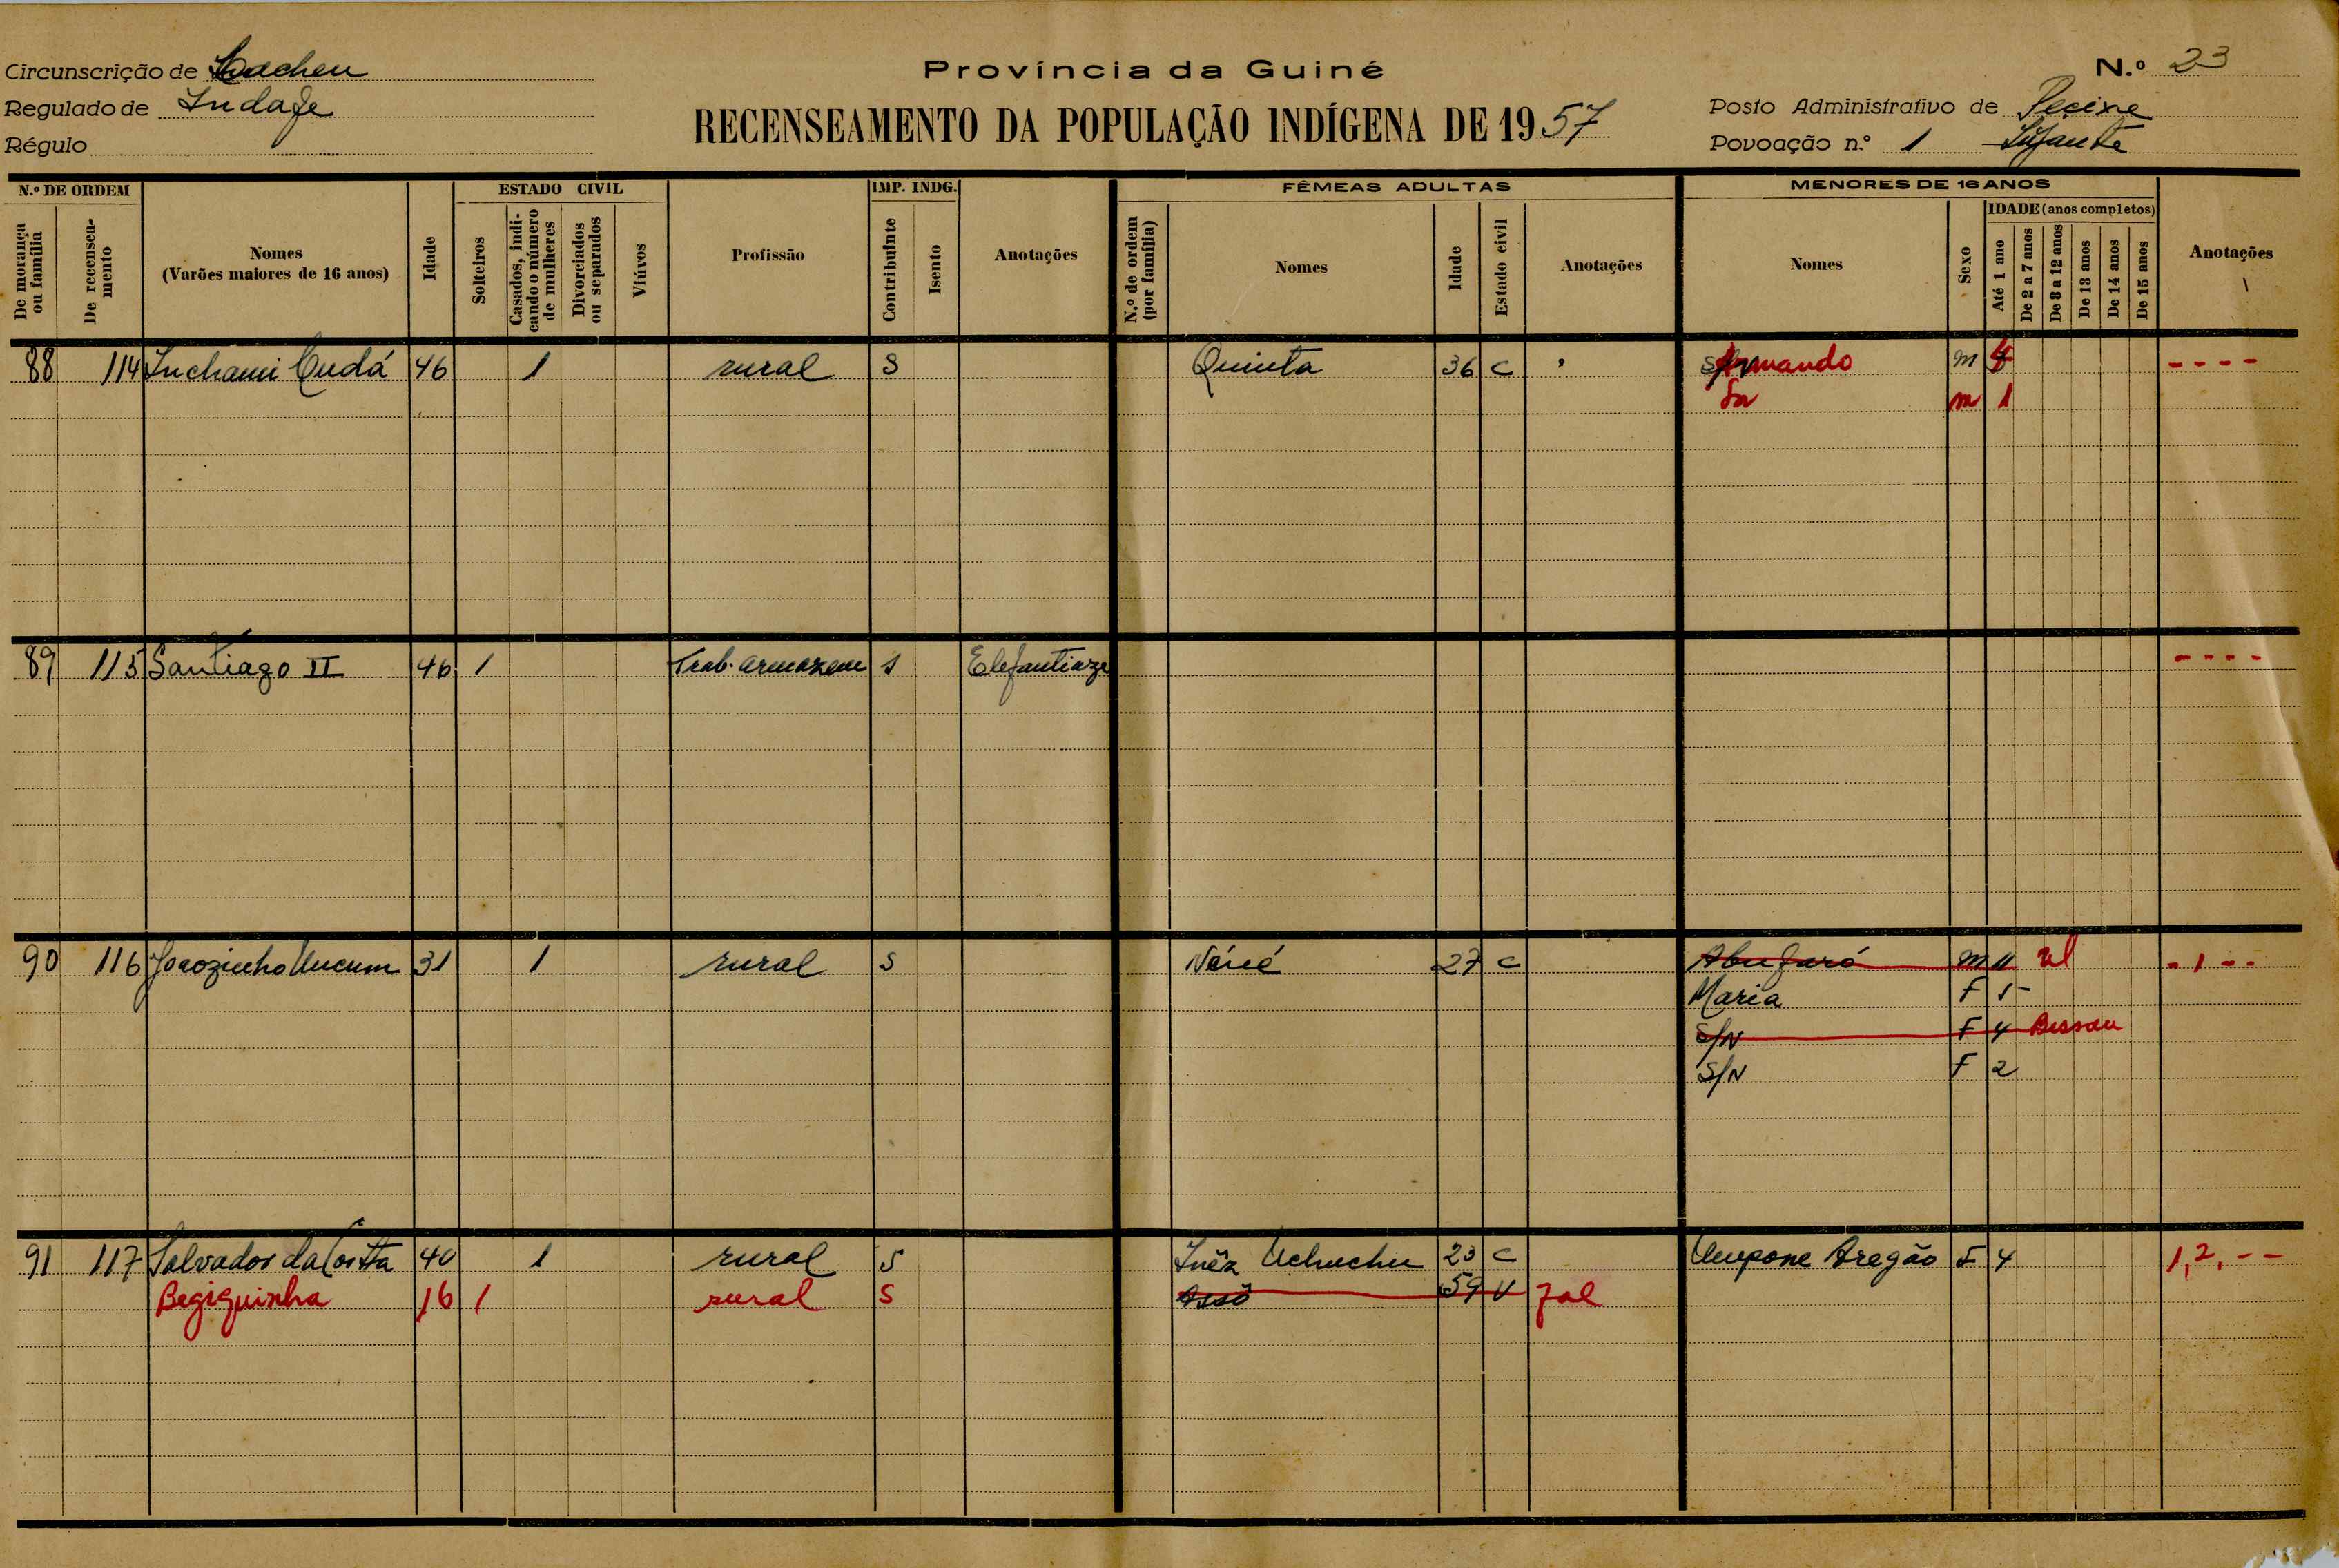 Circunscrição de Cacheu
Província da Guiné
N.º 23
Regulado de Indafe
RECENSEAMENTO DA POPULAÇÃO INDÍGENA DE 1957
Posto Administrativo de Pecixe
Régulo
Povoação n.º 1
N.º DE ORDEM
De morança ou família
De recenseamento
Nomes
(Varões maiores de 16 anos)
Idade
ESTADO CIVIL
Solteiros
Casados, indicando o número de mulheres
Divorciados ou separados
Viúvos
Profissão
IMP. INDG.
Contribuinte
Isento
Anotações
FÊMEAS ADULTAS
N.º de ordem (por família)
Nomes
Idade
Estado civil
Anotações
MENORES DE 16 ANOS
Nomes
Sexo
IDADE (anos completos)
Até 1 ano
De 2 a 7 anos
De 8 a 12 anos
De 13 anos
De 14 anos
De 15 anos
Anotações
88 114 Inchami Cudá 46 1 rural S Quinta 36 C Armando M 4 - - - -
Sn m 1
89 115 Santiago II 46 1 Trab. armazem S Elefantiaze - - - -
90 116 Joaozinho Uucum 31 1 rural S 27 C Abufuró M 11 - 1 - -
Maria F
S/N F 4 Bissau
S/N F 2
91 117 Salvador da Costta 40 1 rural S Inêz Uchuchu 23 C Umpone Aregão F 4 1, 2, - -
Begiguinha 16 1 rural S Assô 59 V fal